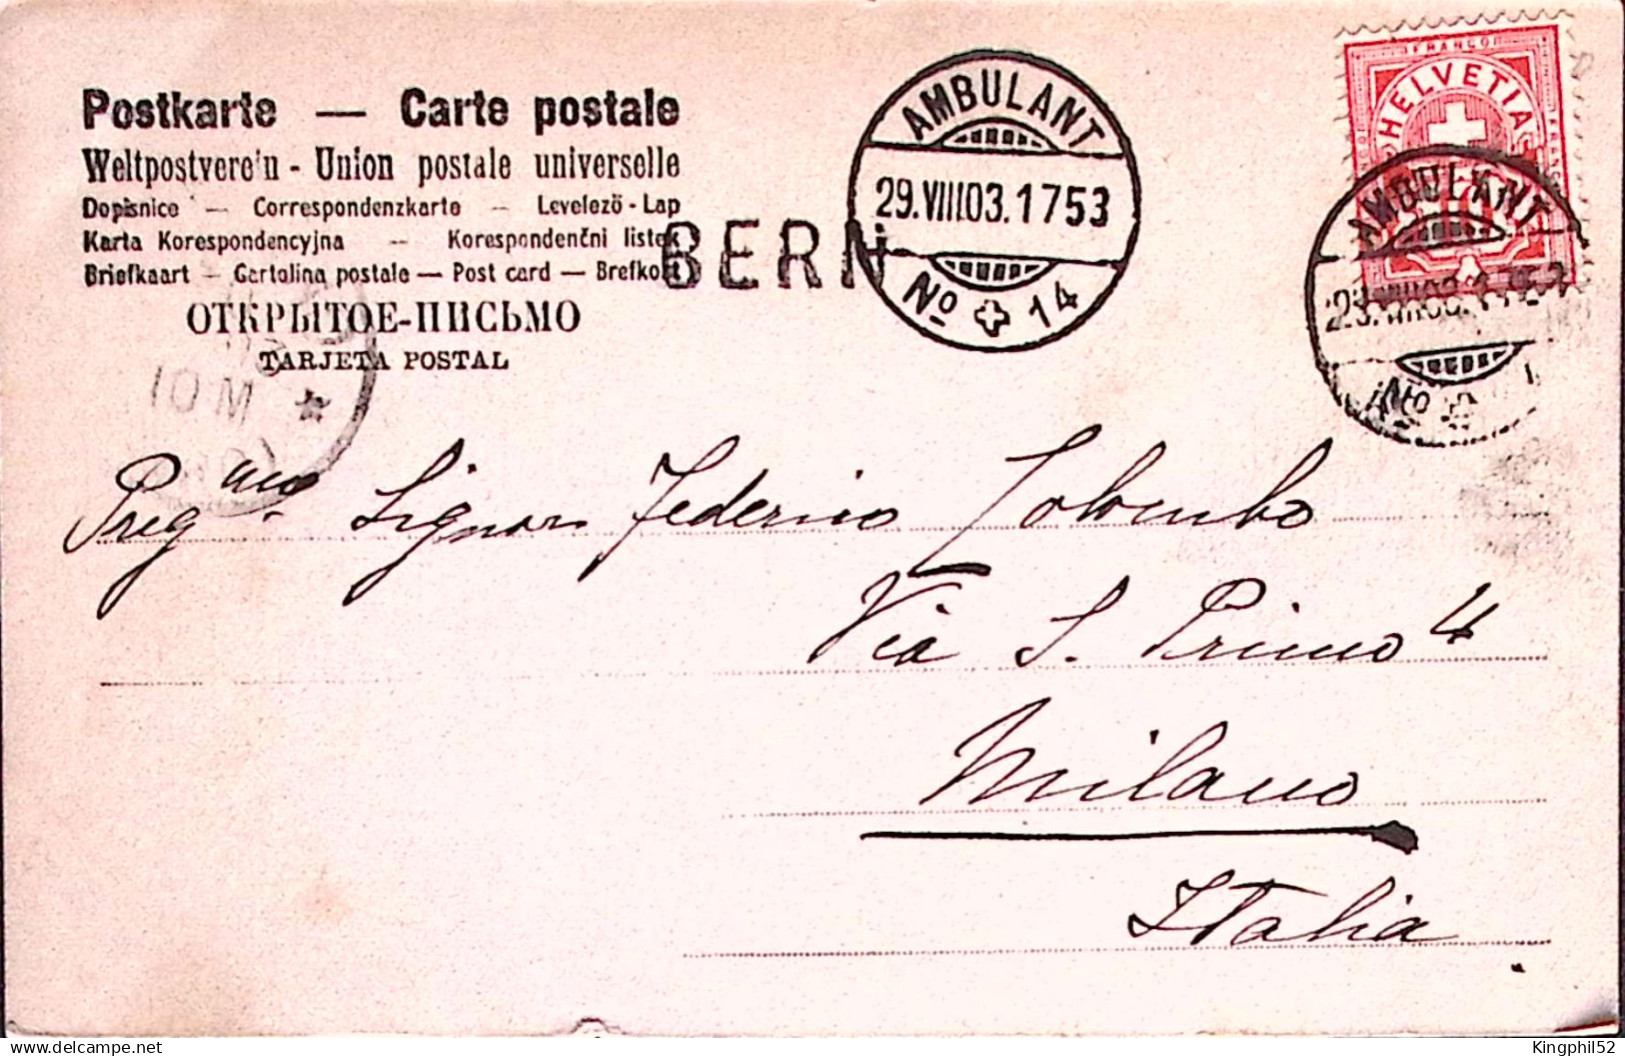 Postkarte — Carte postale
Weltpostverein - Union postale universelle
Dopisnice — Correspondenzkarte — Levelező-Lap
Karta Korespondencyjna — Korespondenční listek
Briefkaart — Cartolina postale — Post card — Brefkort
ОТКРЫТОЕ-ПИСЬМО
TARJETA POSTAL
10 M
BERN
AMBULANT
29.VIII.03.1753
No 14
FRANCO
HELVETIA
AMBULANT
No
Preg Signor Federico Colombo
Via S. Primo 4
Milano
Italia
Kingphil52